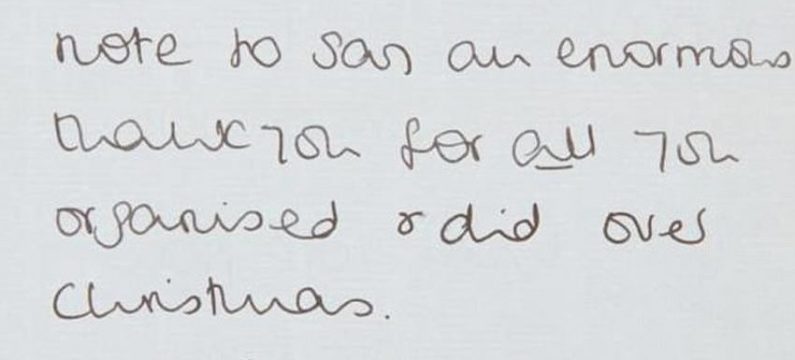 note to say an enormous
thank you for all you
organised & did over
Christmas.